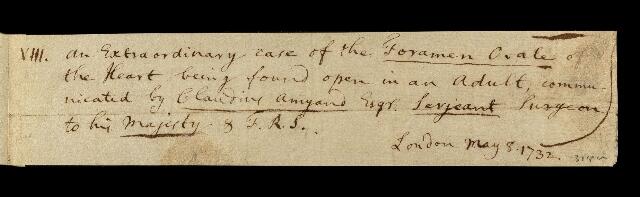 VIII. an Extraordinary case of the Foramen Ovale of
the Heart being found open in an Adult, commu-
nicated by Claudius Amyand Esqr. Serjeant Surgeon
to his Majesty & F.R.S.
London May 8. 1732.